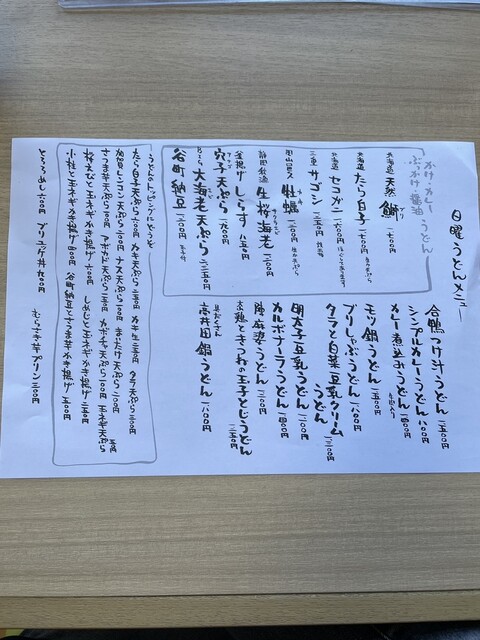 日曜うどんメニュー
かけ・カレーうどん
ぶっかけ醤油
北海道 天然 鰤 ブリ 一七〇〇円
北海道 たら白子 一七〇〇円
北海道 セコガニ 一六〇〇円
三重 サゴシ 一三五〇円
岡山県 牡蠣 一八〇〇円
静岡 生桜海老 一二〇〇円
釜揚げしらす 八五〇円
穴子天ぷら 一六〇〇円
大海老天ぷら 二三五〇円
谷町納豆 一一〇〇円
合鴨つけ汁うどん 一五〇〇円
シンプルカレーうどん 八〇〇円
カレー煮込みうどん 一四〇〇円
モツ鍋うどん 一五〇〇円
ブリしゃぶうどん 一八〇〇円
タラと白菜豆乳クリームうどん 一三〇〇円
明太子豆乳うどん 一二〇〇円
カルボナーラうどん 一四〇〇円
陳麻婆うどん 一二〇〇円
大鶏ときつねの玉子とじうどん 一二五〇円
高井田鍋うどん 一八〇〇円
うどんのトッピングにどうぞ
たら白子天ぷら 六〇〇円 カキ天ぷら 三〇〇円 タラ天ぷら 三〇〇円
加賀レンコン天ぷら 二〇〇円 ナス天ぷら 一〇〇円 まいたけ天ぷら 二〇〇円
さつま芋天ぷら 一〇〇円 アボカド天ぷら 二〇〇円 カボチャ天ぷら 一〇〇円 玉ネギ天ぷら
桜えびと玉ネギかき揚げ 六〇〇円 しめじと玉ネギかき揚げ 二五〇円
小柱と玉ネギかき揚げ 四〇〇円 谷町納豆とさつま芋かき揚げ 三五〇円
とろろめし 六〇〇円 ブリユッケ丼 九〇〇円 むらさき芋プリン 三〇〇円